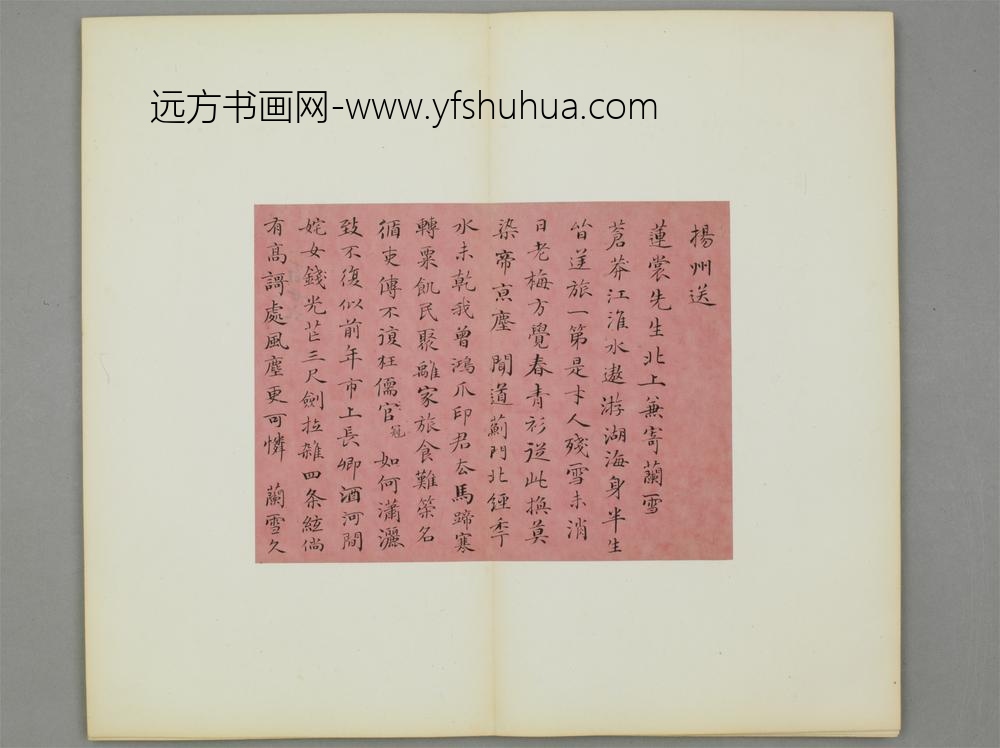 远方书画网-www.yfshuhua.com
揚州送
蓮裳先生北上兼寄蘭雪
蒼莽江淮水遨游湖海身半生
皆逆旅一第是才人殘雪未消
日老梅方覺春青衫從此換莫
染帝京塵 聞道薊門北經季
水未乾我曾鴻爪印君去馬蹄寒
轉粟飢民聚離家旅食難築名
循吏傳不復枉儒官冠 如何瀟灑
致不復似前年市上長卿酒河間
姹女錢光芒三尺劍拉雜四条絃倘
有高謌處風塵更可憐 蘭雪久